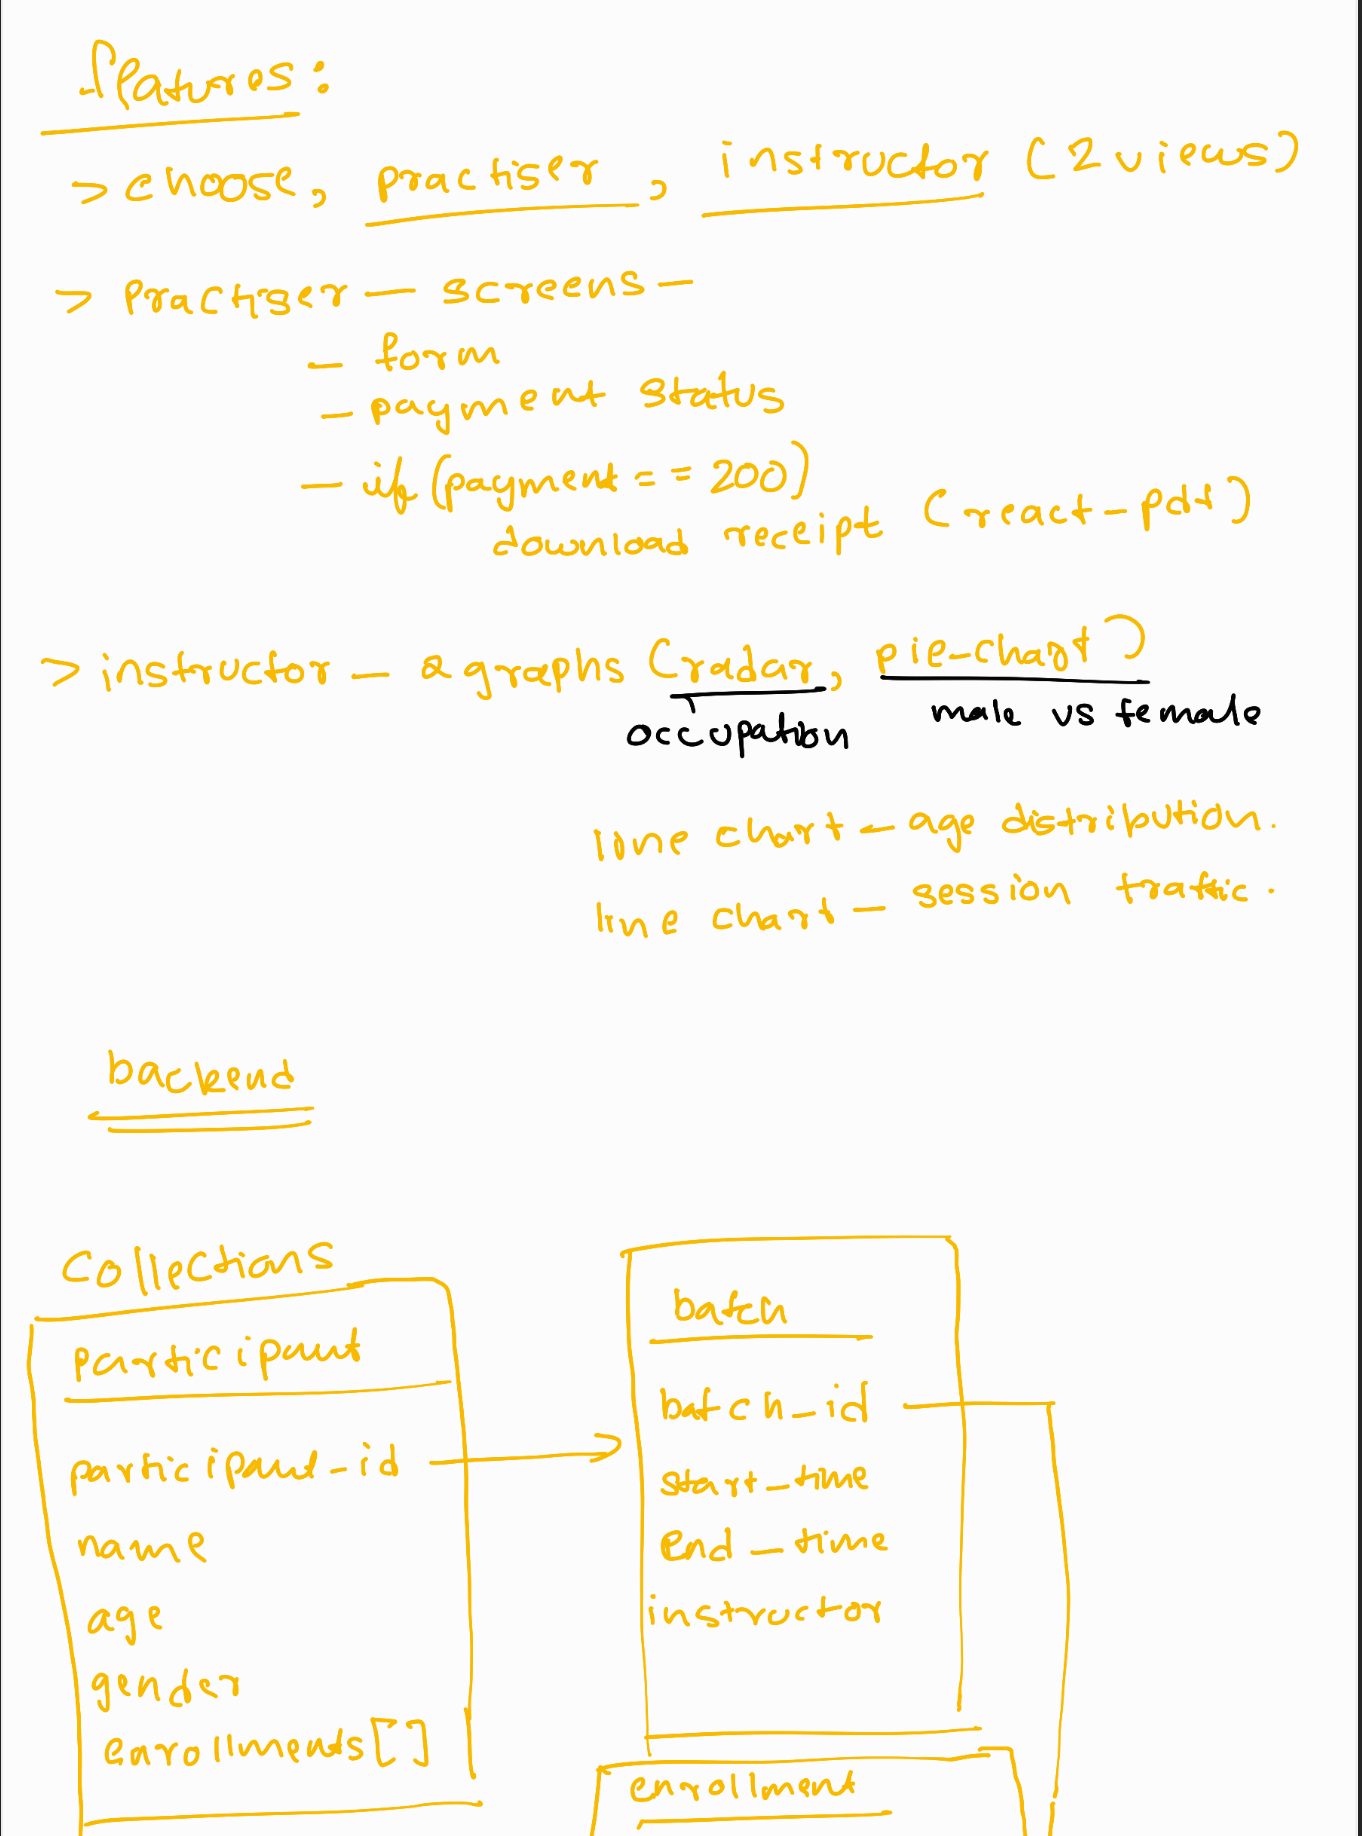 features:
> choose, practiser, instructor (2 views)
> Practiser — screens —
— form
— payment status
— if (payment == 200)
download receipt (react-pdf)
> instructor — 2 graphs (radar, pie-chart)
occupation male vs female
line chart — age distribution.
line chart — session traffic.
backend
Collections
participant
participant_id
name
age
gender
enrollments[]
batch
batch_id
start_time
end_time
instructor
enrollment